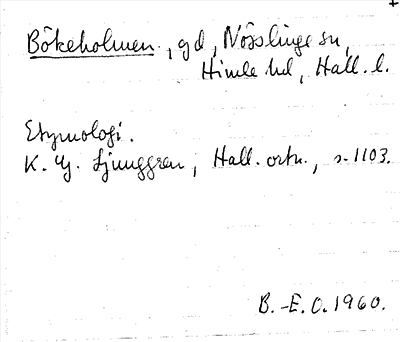 Bökeholmen, gd, Nösslinge sn,
Himle hd, Hall. l.
Etymologi.
K. G. Ljunggren, Hall. ortn., s. 1103.
B.-E. O. 1960.